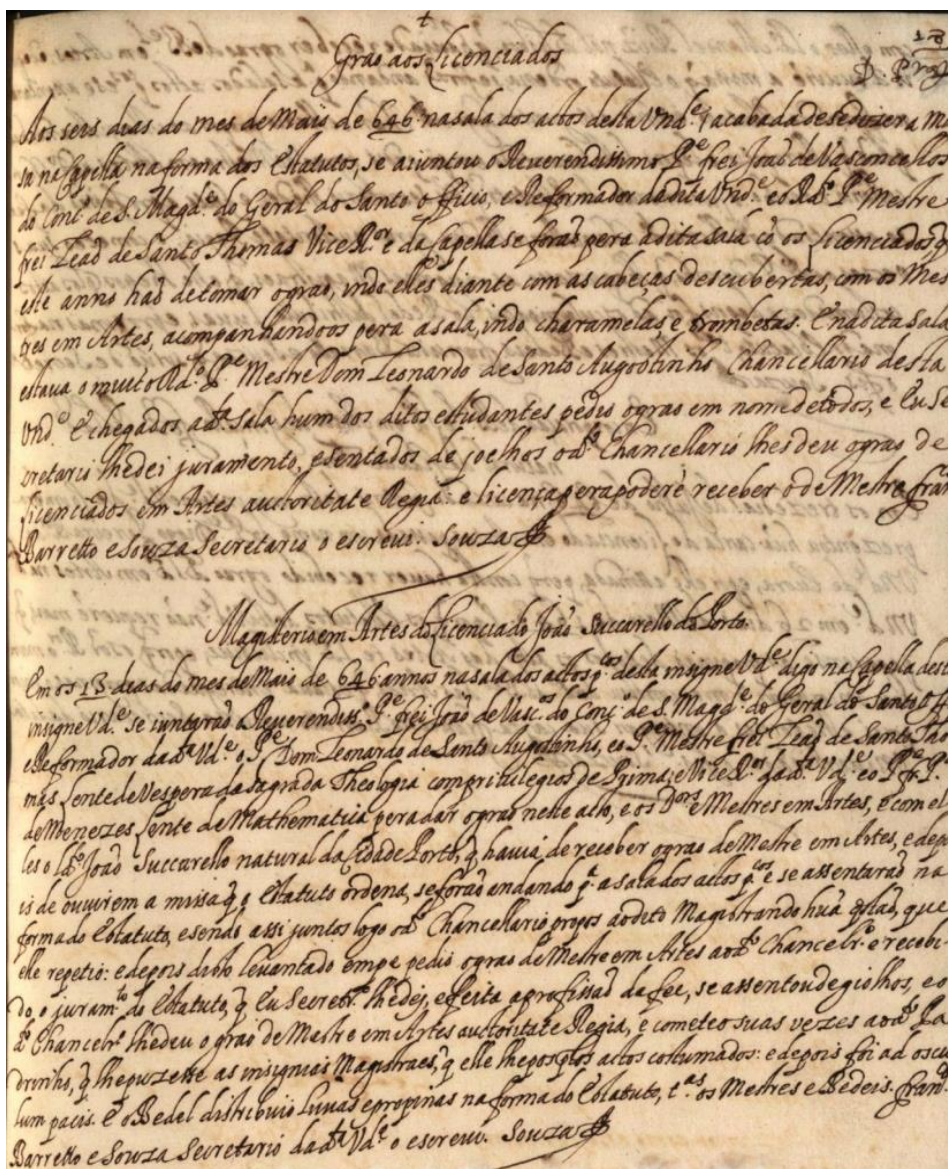 †
Grao aos Licenciados
13
Aos seis dias do mes de Maio de 646 nasala dos actos desta Vnd.e acabada de se dizer a mis
sa na Capella na forma dos Estatutos, se aiuntou o Reuerendissimo P.e frei Joaõ de Vasconcellos
do Cons.o de S. Magd.e do Geral do Santo officio, e Reformador da dita Vnd.e e o Rd.o P.e Mestre
frei Leaõ de Santo Thomas Vice R.or e da Capella se foraõ pera a dita sala cõ os Licenciados q̃
este anno haõ de tomar o grao, indo elles diante com as cabeças descubertas, com os Mes
tres em Artes, acompanhandoos pera a sala, indo charamelas, e trombetas. E na dita sala
estaua o muito Rd.o P.e Mestre Dom Leonardo de Santo Augostinho Chancellario desta
Vnd.e E chegados a d.ta sala hum dos ditos estudantes pedio o grao em nome de todos, e Eu Se
cretario lhe dei juramento, e sentados de joelhos o d.o Chancellario lhes deu o grao de
Licenciados em Artes autoritate Regia: e licença pera poderẽ receber o de Mestre fran.co
Barretto e Souza Secretario o escreui. Souza
Magisterio em Artes do Licenciado Joaõ Succarello do Porto.
Em os 13 dias do mes de Maio de 646 annos na sala dos actos p.cos desta insigne Vd.e digo na Capella desta
insigne Vd.e se iuntaraõ o Reuerendiss.o P.e frei Joaõ de Vasc.os do Cons.o de S. Magd.e do Geral do Santo Off.o
e Reformador da d.ta Vd.e o P.e Dom Leonardo de Santo Augostinho, e o P.e Mestre frei Leaõ de Santo Tho
mas Lente de Vespera da Sagrada Theologia com priuilegios de Prima, e Vice R.or da d.ta Vd.e e o P.e fr. P.o
de Menezes Lente de Mathematica pera dar o grao neste acto, e os D.ores e Mestres em Artes, e com el
les o Ld.o Joaõ Succarello natural da Cidade Porto, q̃ hauia de receber o grao de Mestre em Artes, e depo
is de ouuirem a missa q̃ o Estatuto ordena, se foraõ andando p.a a sala dos actos p.cos e se assentaraõ na
forma do Estatuto, e sendo assi juntos logo o d.o Chancellario propos ao dito Magistrando huã q̃staõ, que
elle repetio: e depois disto leuantado em pe pedio o grao de Mestre em Artes ao d.to Chancelr.o e recebi
do, o juram.to do Estatuto, q̃ Eu Secretr.o lhe dej, e feita a profissaõ da fee, se assentou de giolhos, e o
d.o Chancelr.o lhe deu o grao de Mestre em Artes autoritate Regia, e cometeo suas vezes ao d.o Pa
drinho, q̃ lhe puzesse as insignias Magistraes, q̃ elle lhe pos p.los actos costumados: e depois foi ad oscu
lum pacis. E o Bedel distribuio Luuas e propinas na forma do Estatuto, t.as os Mestres e Bedeis. fran.co
Barretto e Souza Secretario da d.ta Vd.e o escreui. Souza